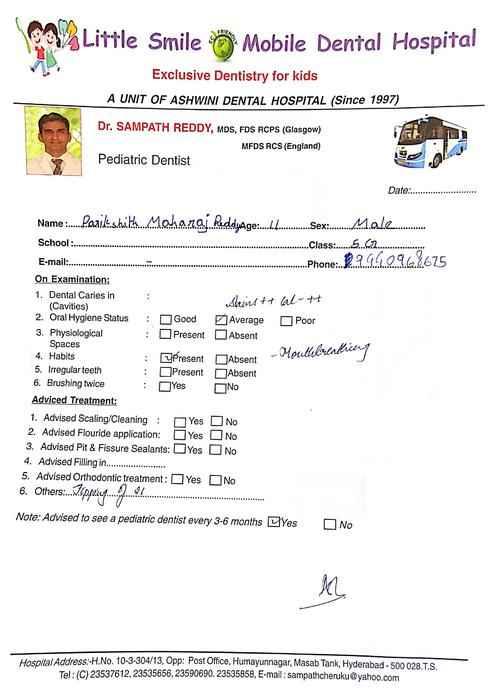 Little Smile Mobile Dental Hospital
Exclusive Dentistry for kids
A UNIT OF ASHWINI DENTAL HOSPITAL (Since 1997)
Dr. SAMPATH REDDY, MDS, FDS RCPS (Glasgow)
MFDS RCS (England)
Pediatric Dentist
Date:
Name: Parikshith Maharaj Reddy Age: 11 Sex: Male
School: Class: 5
E-mail: - Phone: 9940968675
On Examination:
1. Dental Caries in (Cavities) : Stains ++ Cal - ++
2. Oral Hygiene Status : Good Average Poor
3. Physiological Spaces : Present Absent
4. Habits : Present Absent - Mouthbreathing
5. Irregular teeth : Present Absent
6. Brushing twice : Yes No
Adviced Treatment:
1. Advised Scaling/Cleaning : Yes No
2. Advised Flouride application: Yes No
3. Advised Pit & Fissure Sealants: Yes No
4. Advised Filling in
5. Advised Orthodontic treatment : Yes No
6. Others: Tipping of 21
Note: Advised to see a pediatric dentist every 3-6 months Yes No
Hospital Address:-H.No. 10-3-304/13, Opp: Post Office, Humayunnagar, Masab Tank, Hyderabad - 500 028.T.S.
Tel : (C) 23537612, 23535656, 23590690. 23535858, E-mail : sampathcheruku@yahoo.com